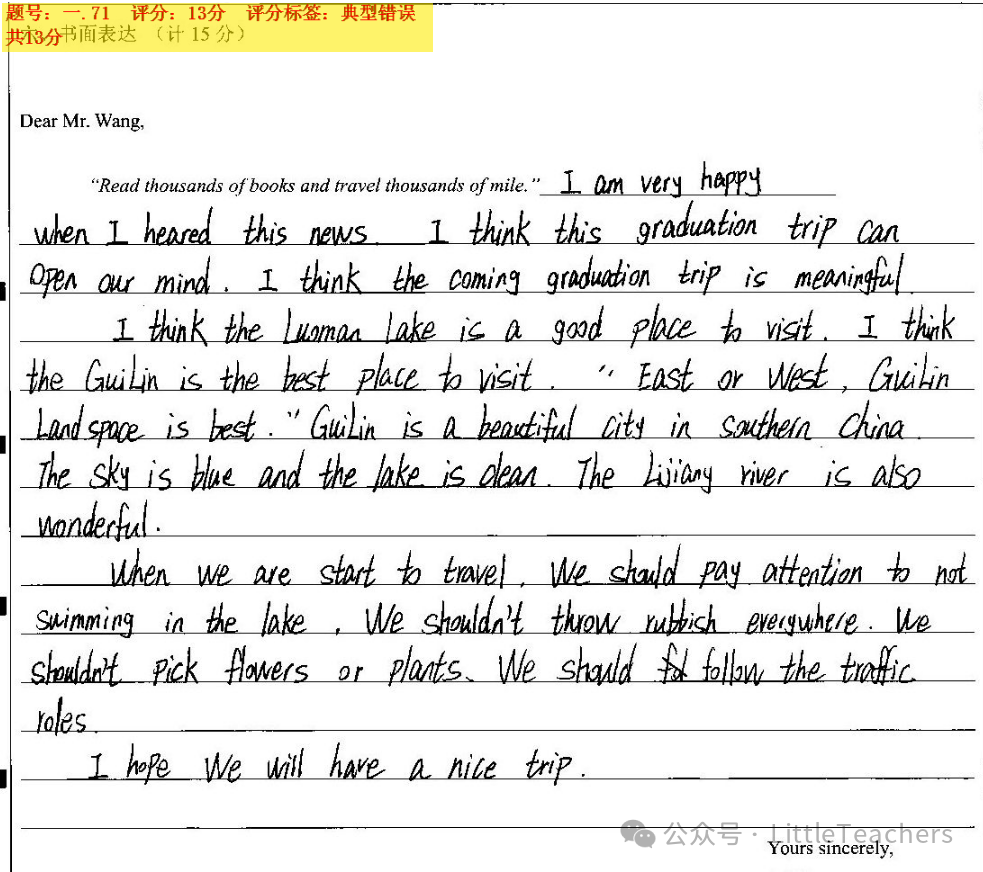 题号：一.71 评分：13分 评分标签：典型错误
共13分 书面表达 （计 15 分）
Dear Mr. Wang,
“Read thousands of books and travel thousands of mile.” I am very happy
when I heared this news. I think this graduation trip can
open our mind. I think the coming graduation trip is meaningful.
I think the Luoman Lake is a good place to visit. I think
the GuiLin is the best place to visit. “East or West, GuiLin
Landspace is best.” GuiLin is a beautiful city in Southern China.
The sky is blue and the lake is clean. The Lijiang river is also
wonderful.
When we are start to travel, We should pay attention to not
swimming in the lake, We shouldn't throw rubbish everywhere. We
shouldn't pick flowers or plants. We should follow the traffic
roles.
I hope We will have a nice trip.
公众号 · LittleTeachers
Yours sincerely,